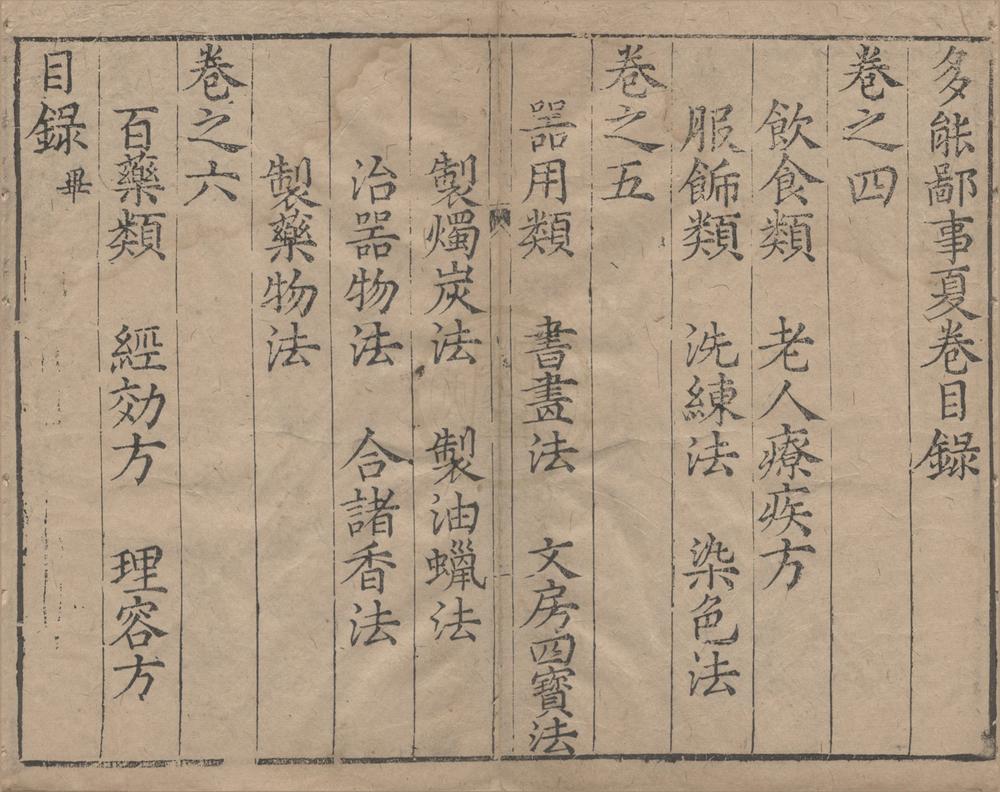 多能鄙事夏卷目録
卷之四
飲食類 老人療疾方
服飾類 洗練法 染色法
卷之五
器用類 書畫法 文房四寳法
製燭炭法 製油蠟法
治器物法 合諸香法
製藥物法
卷之六
百藥類 經効方 理容方
目録畢